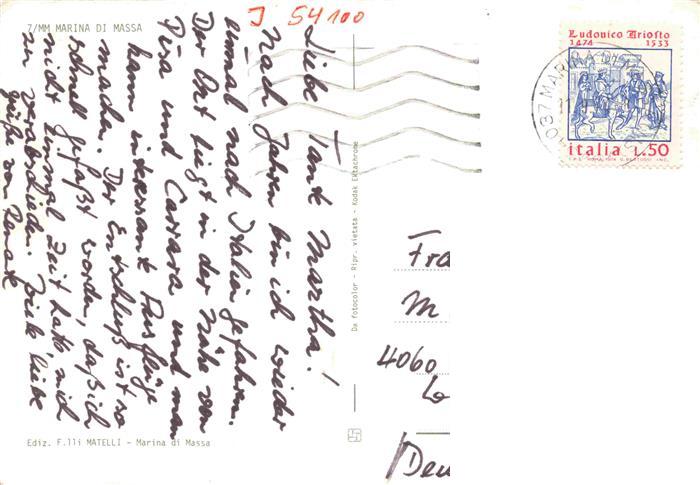 7/MM MARINA DI MASSA
J 54100
Liebe Tante Martha!
Nach Jahren bin ich wieder
einmal nach Italien gefahren.
Der Ort liegt in der Nähe von
Pisa und Carrara und man
kann interessante Ausflüge
machen. Der Entschluß ist so
schnell gefaßt worden, daß ich
nicht einmal Zeit hatte mich
zu verabschieden. Viele, liebe
Grüße von Renate
Ediz. F.lli MATELLI - Marina di Massa
Da fotocolor - Ripr. vietata - Kodak Ektachrome
Ludovico Ariosto
1474 1533
italia L.50
I.P.S. ROMA 1974
037 MARINA
Fra
M
4060
Lo
Deu